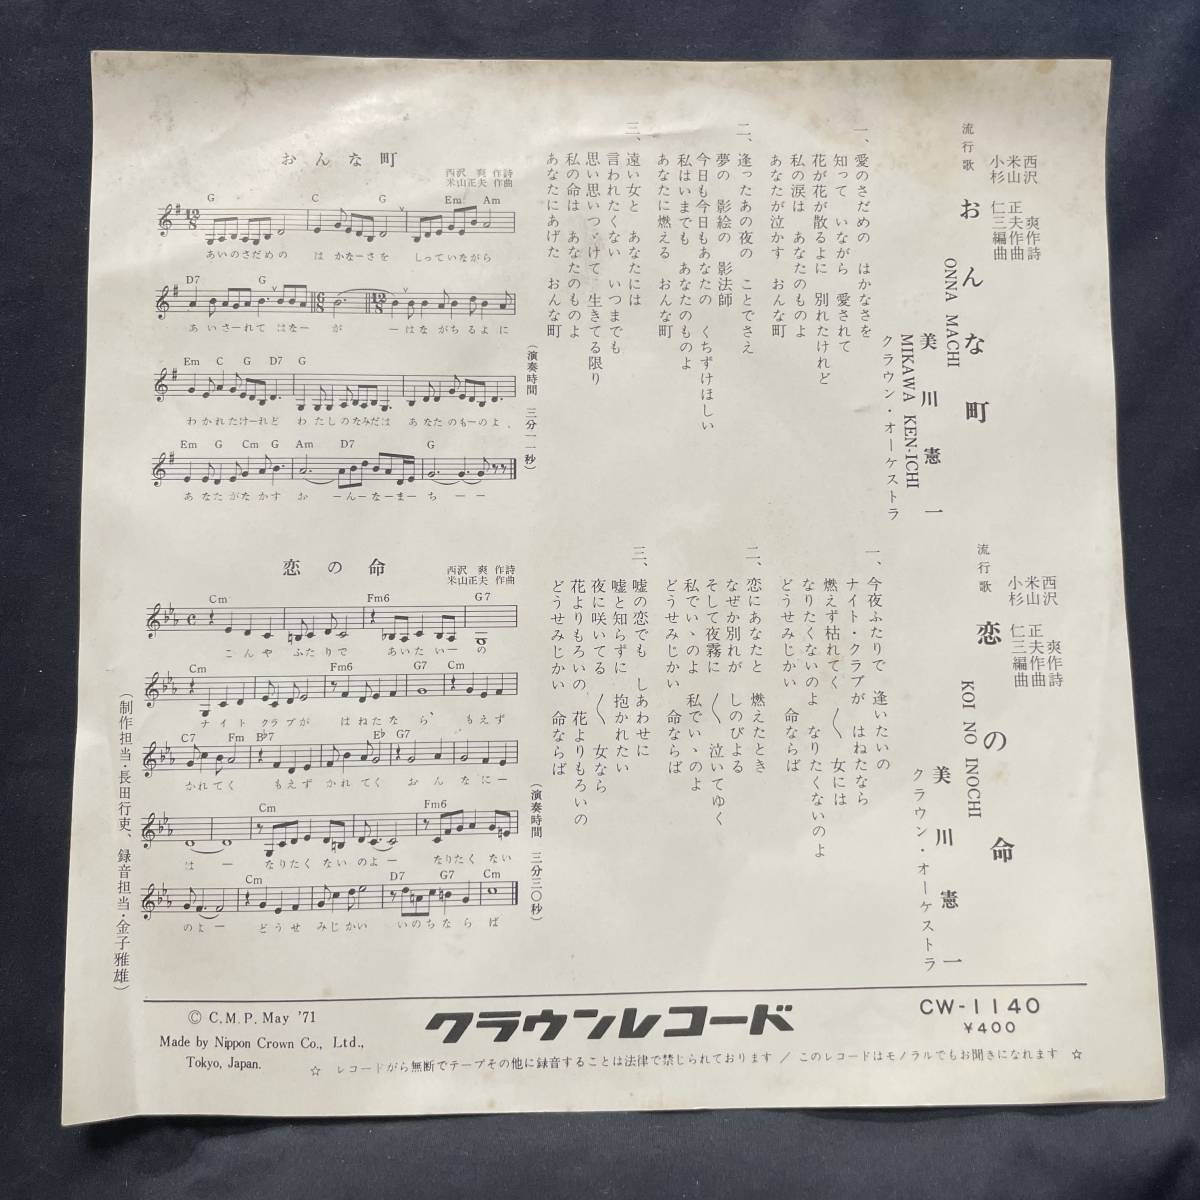 流行歌
おんな町
ONNA MACHI
西沢 爽作詩
米山 正夫作曲
小杉 仁三編曲
美川憲一
MIKAWA KEN-ICHI
クラウン・オーケストラ
一、愛のさだめの はかなさを
知って いながら 愛されて
花が花が散るよに 別れたけれど
私の涙は あなたのものよ
あなたが泣かす おんな町
二、逢ったあの夜の ことでさえ
夢の 影絵の 影法師
今日も今日もあなたの くちずけほしい
私はいまでも あなたのものよ
あなたに燃える おんな町
三、遠い女と あなたには
言われたくない いつまでも
思い思いつゞけて 生きてる限り
私の命は あなたのものよ
あなたにあげた おんな町
(演奏時間 三分一一秒)
おんな町
西沢 爽 作詩
米山正夫 作曲
G C G Em Am
あいのさだめの はかなーさを しっていながら
D7 G
あいさーれて はなーが ーはながちるよに
Em C G D7 G
わかれたけーれど わたしのなみだは あなたのもーのよ、
Em G Cm G Am D7 G
あなたがなかす おーんーなーまーちーー
流行歌
恋の命
KOI NO INOCHI
西沢 爽作詩
米山 正夫作曲
小杉 仁三編曲
美川憲一
クラウン・オーケストラ
一、今夜ふたりで 逢いたいの
ナイト・クラブが はねたなら
燃えず枯れてく 〱 女には
なりたくないのよ なりたくないのよ
どうせみじかい 命ならば
二、恋にあなたと 燃えたとき
なぜか別れが しのびよる
そして夜霧に 〱 泣いてゆく
私でいゝのよ 私でいゝのよ
どうせみじかい 命ならば
三、嘘の恋でも しあわせに
嘘と知らずに 抱かれたい
夜に咲いてる 〱 女なら
花よりもろいの 花よりもろいの
どうせみじかい 命ならば
(演奏時間 三分三〇秒)
恋の命
西沢 爽 作詩
米山正夫 作曲
Cm Fm6 G7
こんや ふたりで あいたいーの
Cm Fm6 G7 Cm
ナイト クラブが はねたなら、 もえず
C7 Fm B♭7 E♭ G7
かれてく もえずかれてく おんなにー
Cm Fm6
はー なりたくないのよー なりたくない
Cm D7 G7 Cm
のよー どうせみじかい いのちならば
(制作担当・長田行吏、録音担当・金子雅雄)
© C.M.P. May '71
Made by Nippon Crown Co., Ltd.,
Tokyo, Japan.
クラウンレコード
CW-1140
¥400
☆ レコードがら無断でテープその他に録音することは法律で禁じられております / このレコードはモノラルでもお聞きになれます ☆